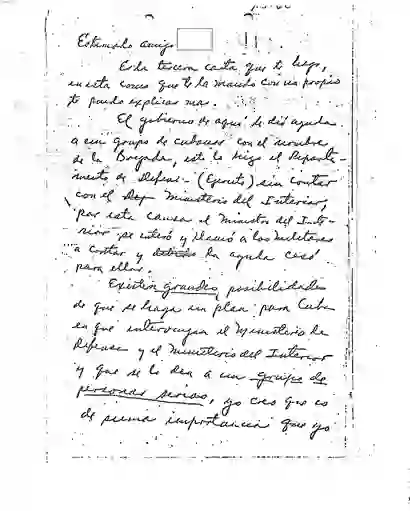 Estimado amigo
Esta tercera carta que te hago,
en esta como que te la mando con un propio
te puedo explicar mas.
El gobierno de aqui le dió ayuda
a un grupo de cubanos con el nombre
de la Brigada, esto lo hizo el Departa-
mento de Defensa - (Ejercito) sin contar
con el Dep Ministerio del Interior,
por esta causa el Ministro del Inte-
rior se enteró y llamó a los militares
a contar y la ayuda cesó
para ellos.
Existen grandes posibilidades
de que se haga un plan para Cuba
en que intervengan el Ministerio de
Defensa y el Ministerio del Interior
y que se lo den a un grupo de
personas serias, yo creo que es
de suma importancia que yo